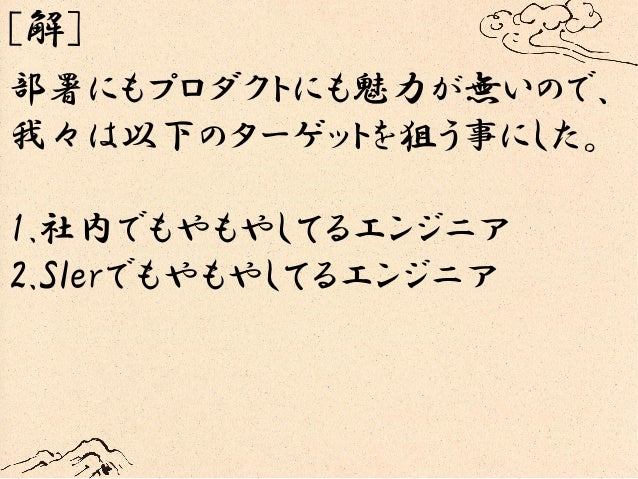 [解]
部署にもプロダクトにも魅力が無いので、
我々は以下のターゲットを狙う事にした。
1.社内でもやもやしてるエンジニア
2.SIerでもやもやしてるエンジニア